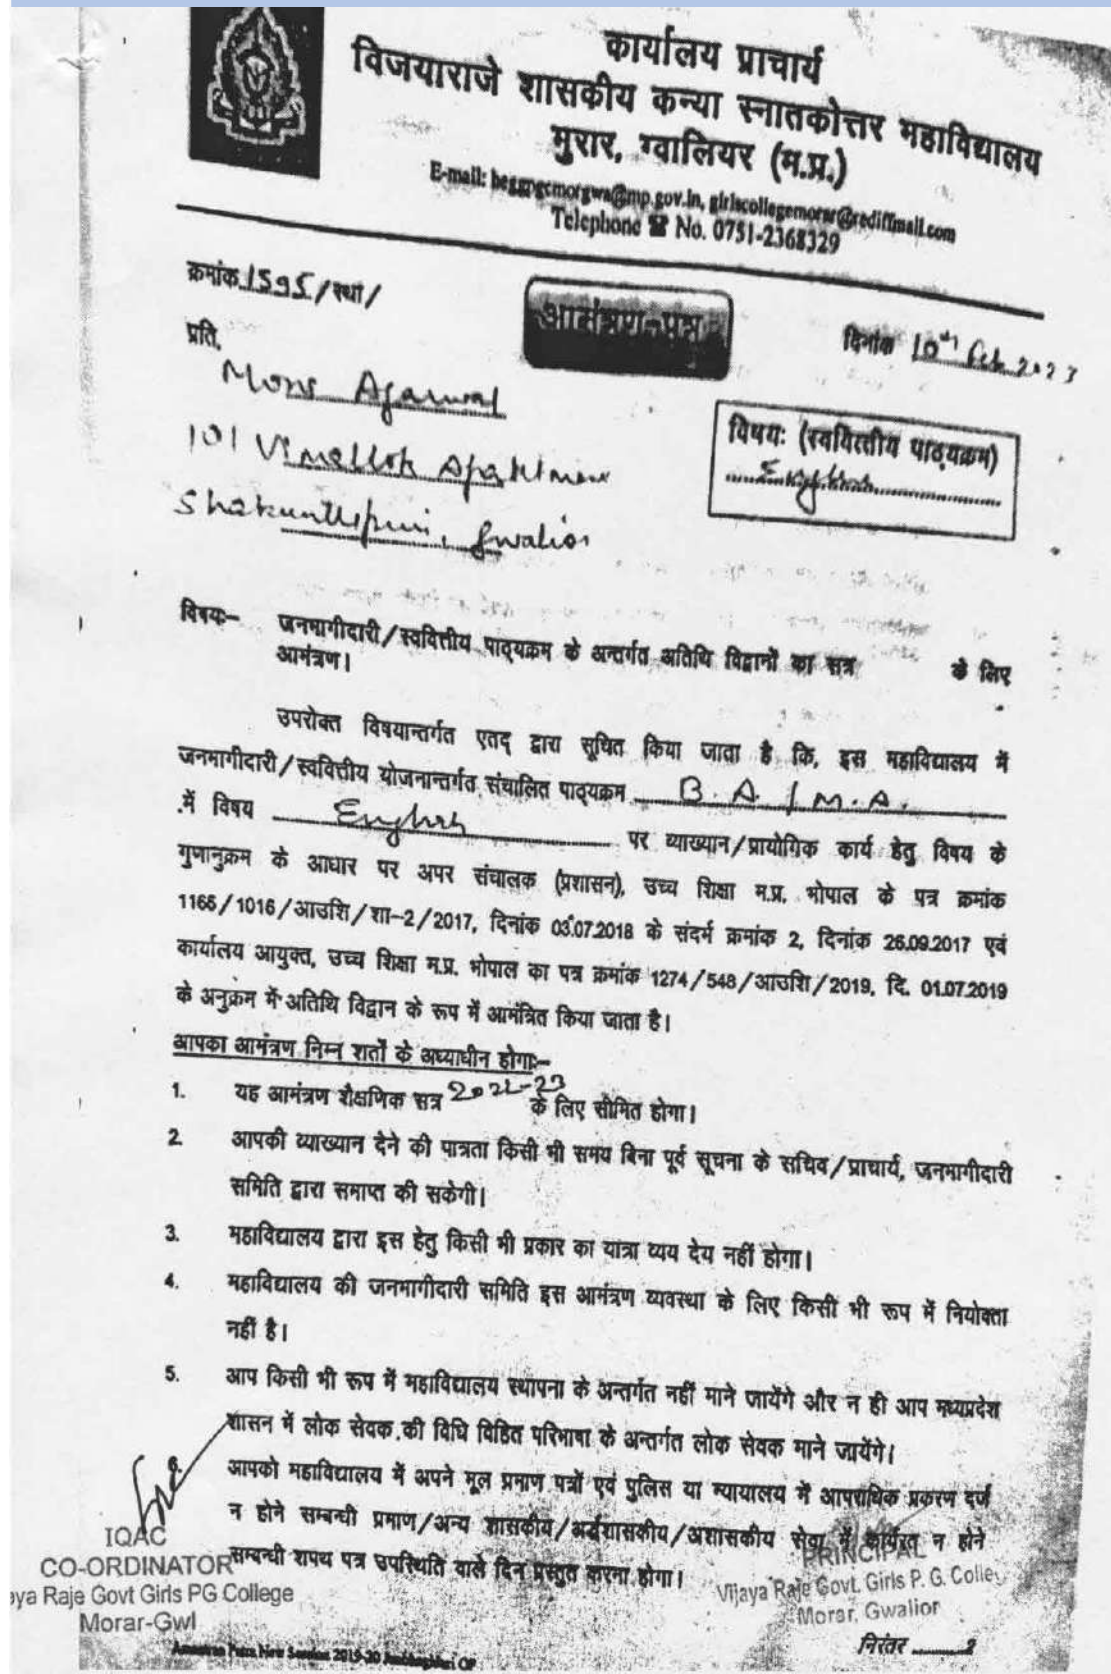 कार्यालय प्राचार्य
विजयाराजे शासकीय कन्या स्नातकोत्तर महाविद्यालय
मुरार, ग्वालियर (म.प्र.)
E-mail: heggpgcmorgwa@mp.gov.in, girlscollegemorar@rediffmail.com
Telephone ☎ No. 0751-2368329
क्रमांक 1595/स्था/
आमंत्रण-पत्र
दिनांक 10th Feb 2023
प्रति,
Agarwal
101 Vimallok
विषयः (स्ववित्तीय पाठ्यक्रम)
English
Gwalior
विषयः– जनभागीदारी/स्ववित्तीय पाठ्यक्रम के अन्तर्गत अतिथि विद्वानों का सत्र के लिए
आमंत्रण।
उपरोक्त विषयान्तर्गत एतद् द्वारा सूचित किया जाता है कि, इस महाविद्यालय में
जनभागीदारी/स्ववित्तीय योजनान्तर्गत संचालित पाठ्यक्रम B.A. / M.A.
में विषय English पर व्याख्यान/प्रायोगिक कार्य हेतु विषय के
गुणानुक्रम के आधार पर अपर संचालक (प्रशासन), उच्च शिक्षा म.प्र. भोपाल के पत्र क्रमांक
1166/1016/आउशि/शा–2/2017, दिनांक 03.07.2018 के संदर्भ क्रमांक 2, दिनांक 26.09.2017 एवं
कार्यालय आयुक्त, उच्च शिक्षा म.प्र. भोपाल का पत्र क्रमांक 1274/548/आउशि/2019, दि. 01.07.2019
के अनुक्रम में अतिथि विद्वान के रूप में आमंत्रित किया जाता है।
आपका आमंत्रण निम्न शर्तों के अध्याधीन होगाः–
1. यह आमंत्रण शैक्षणिक सत्र 2022-23 के लिए सीमित होगा।
2. आपकी व्याख्यान देने की पात्रता किसी भी समय बिना पूर्व सूचना के सचिव/प्राचार्य, जनभागीदारी
समिति द्वारा समाप्त की सकेगी।
3. महाविद्यालय द्वारा इस हेतु किसी भी प्रकार का यात्रा व्यय देय नहीं होगा।
4. महाविद्यालय की जनभागीदारी समिति इस आमंत्रण व्यवस्था के लिए किसी भी रूप में नियोक्ता
नहीं है।
5. आप किसी भी रूप में महाविद्यालय स्थापना के अन्तर्गत नहीं माने जायेंगे और न ही आप मध्यप्रदेश
शासन में लोक सेवक की विधि विहित परिभाषा के अन्तर्गत लोक सेवक माने जायेंगे।
6. आपको महाविद्यालय में अपने मूल प्रमाण पत्रों एवं पुलिस या न्यायालय में आपराधिक प्रकरण दर्ज
न होने सम्बन्धी प्रमाण/अन्य शासकीय/अर्द्धशासकीय/अशासकीय सेवा में कार्यरत न होने
सम्बन्धी शपथ पत्र उपस्थिति वाले दिन प्रस्तुत करना होगा।
IQAC
CO-ORDINATOR
ya Raje Govt Girls PG College
Morar-Gwl
PRINCIPAL
Vijaya Raje Govt. Girls P. G. Colle
Morar, Gwalior
New Session 2019-20
निरंतर ..........2